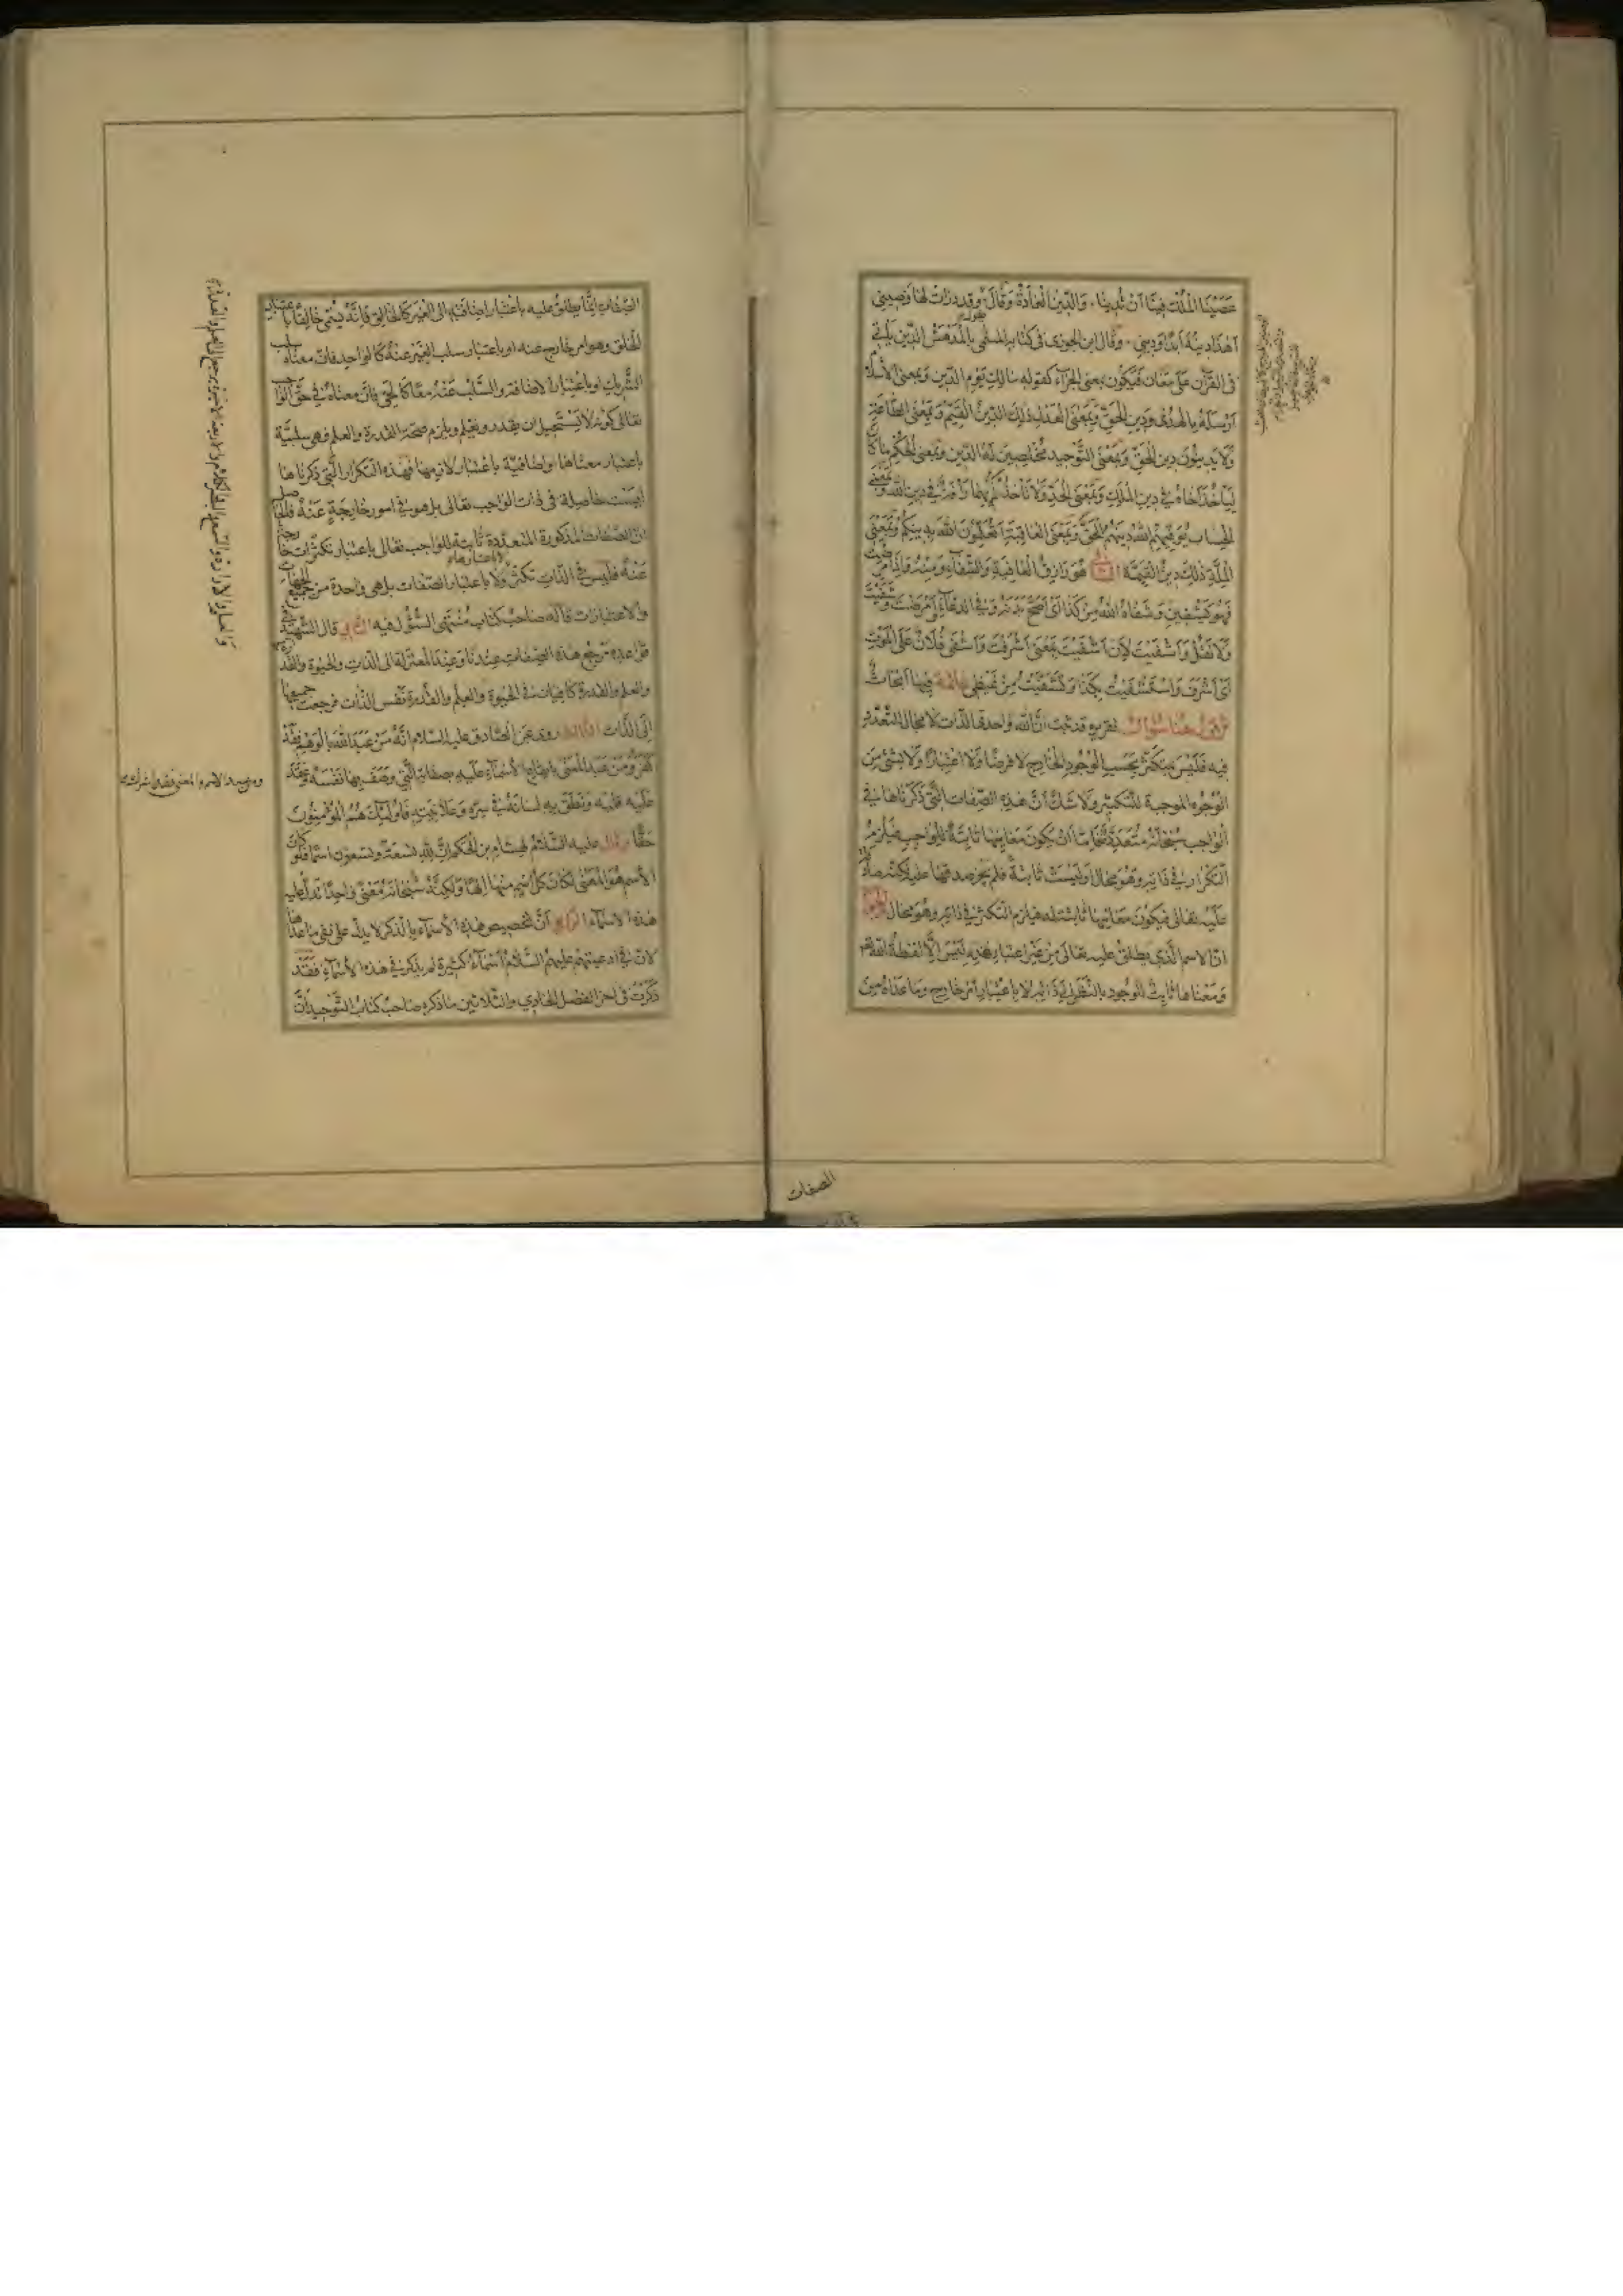 عَصَيْنَا المَلْكَ فِينَا اَنْ نَدِينَا . وَالدّينُ الْعَادَةُ وَقَالَ وقد درات لها وضيني
اَهٰذَا دِينُهُ اَبَدًا وَدِينِي . وقال ابن الجوزى فى كتابه المسمى بِالْمُدْهِشْ الدّين يَأتى
فى القرآن على مَعَان فَيَكُون بمعنى الجزاء كقوله مالك يَوْم الدّين وَبِمعنى الاسلام
اَرْسَلَهُ بِالهُدى وَدِين الحَقّ وَبِمَعْنَى الْعَدْل ذلك الدّينُ القَيّم وَبِمَعْنى الطَّاعَة
وَلَا يَدِينُونَ دِين الحَقّ وَبِمَعْنَى التَّوْحِيد مُخْلِصِينَ لَهُ الدّين وَبمعنى الحُكْم مَا كَانَ
لِيَأخُذَ اَخَاهُ فِي دِين المَلِك وَبِمَعْنَى الحَدّ وَلَا تَأخُذْكُمْ بِهِمَا رَأفَةٌ فِي دِين اللّٰه وَبِمَعْنى
الحِسَاب يُوَفّيهِم اللّٰهُ دِينَهُمُ الْحَقَّ وَبِمَعْنى العَاقِبَة اَتُعَلّمُونَ اللّٰهَ بِدِينِكُمْ وَبِمَعْنَى
المِلَّة ذٰلِكَ دِينُ القَيّمَة الشافى هُوَ رَازِقُ الْعَافِيَة وَالشّفَاء وَمِنْهُ وَاِذَا مَرِضْتُ
فَهُوَ يَشْفِين وَشَفَاهُ اللّٰهُ مِنْ كَذَا اَىْ اَصَحَّ بَدَنَهُ وَفى الدعَاء اَمْرَضْتَ وَشَفَيْتَ
وَلَا تَقُلْ وَاَشْفَيْتَ لِاَنَّ اَشْفَيْتَ بِمَعْنى اَشْرَفْتَ وَاَشْفَى فُلَانٌ عَلَى المَوْتِ
اَىْ اَشْرَفَ وَاسْتَشْفَيْتُ بِكَذَا وَتَشَفَّيْتُ مِنْ غَيْظى خاتمة فِيهَا اَبْحَاثٌ
الاول هنا سؤال تقريره قد ثبت انَّ اللّٰه واحد فا الذات لا مجال للتَّعَدّد
فيه فَلَيْسَ بِمُتَكَثّر بِحَسَب الوُجُودِ الخَارِجى لا فَرضًا وَلَا اعْتِبَارًا وَلَا بِشَىْء مِنَ
الوُجُوه الموجبة للتكثير وَلا شَكَّ اَنَّ هٰذِه الصّفَات الَّتى ذَكَرْنَاهَا فى
الوَاجِب سُبْحَانَهُ مُتَعَدّدَة فَامَّا اَنْ يَكُونَ مَعَانِيهَا ثَابِتَةً للوَاجِب فَيَلْزَمُ
التّكْرَار فى ذَاتِه وَهُوَ محال اَو لَيْسَتْ ثَابتَةً فلم يَجُزْ صدقها عليه لكنّه صادق
عَلَيْه تعَالى فَيَكُونُ مَعَانِيها ثابتة له فيَلزم التكثر فى ذاته وهُوَ محال الجواب
انّ الاسم الَّذى يطلق عليه تعالى مِنْ غَيْر اعْتِبَار غَيْرِه لَيْسَ اِلَّا لفظة اللّٰه
وَمَعْنَاهَا ثَابِتُ الوُجُود بالنَّظَر اِلَى ذَاتِه لا بِاعْتِبَار اَمْر خارج وما عَدَاهُ من
الصفات
الصّفَات اِنَّمَا يطلق عليه باعْتبَار اضافته الى الغَيْر كَالخَالِق فَاِنَّهُ يُسَمَّى خَالِقًا باعتبار
الخلق وهو امر خارج عنه او باعتبار سلب الغَيْر عَنْهُ كَالواحد فانّ معناه سلب
الشَّريك او باعْتِبَار الاضَافَة والسَّلْب عَنْهُ معًا كَالحَىّ فَانَّ مَعناهُ فى حَقّ الواجب
تعالى كونه لَا يَسْتَحِيل ان يقدر ويَعْلم ويلزم صحّة القدرة والعلم فهى سلبيّة
باعتبار معناها واضافيّة باعْتبار لازمها فهذه التكرار الَّتى ذكرناها
ليست حَاصِلة فى ذات الواجب تعَالى بل هو فى امور خَارِجَةٍ عَنْهُ فالحاصل
انّ الصّفات المذكورة المتعدّدة ثَابتة للواجب تعالى باعتبار تكثرات خارجة
عَنْهُ فليس فى الذَّات تكثر وَلَا باعتبار الصّفات بل هى واحدة من جميع الجهات
والاعتبارات قاله صاحبُ كتاب مُنْتَهى السُّؤل فيه الثانى قال الشّهيد فى
قواعده مَرْجِعُ هذه الصّفات عِنْدَنَا وَعِنْدَ المعتزلة الى الذّات والحيوة والقدرة
والعلم والقدرة كافيان فى الحَيوة والعلم والقدرة نَفْس الذّات فرجعت جميعها
اِلَى الذّات الثالث روى عَن الصّادق عليه السّلام اَنَّهُ مَنْ عَبَدَ اللّٰهَ بالوهم فقد
كَفَرَ وَمَنْ عَبَدَ المَعْنَى بايقَاع الأسْمَاءِ عَلَيه بصفَاته الّتى وَصَفَ بِهَا نَفْسَهُ فعَقَد
عَلَيْه قَلْبَه وَنَطَقَ بِه لسَانُهُ فى سِرّه وَعَلَانِيَتِه فَاُولٰئِكَ هُمُ المُؤْمِنُونَ
حَقًّا وقال عَلَيه السَّلَامُ لهشام بن الحكم اِنَّ لِلّٰه تسعة وتسعون اسمًا فلو كان
الاسم هُوَ المَعْنى لَكَانَ كُلّ اسْمٍ منها اِلٰهًا ولكِنَّهُ سُبْحَانَهُ مَعْنًى واحد تدلّ عليه
هذه الاسْمَاء الرابع اَنَّ تخصيص هٰذِه الأسماء بالذكر لا يدلّ على نفى ماعداها
لانّ فى ادعيتهم عليهم السَّلَامُ اَسْمَاءً كَثيرة لم يذكر فى هذه الاسْمَاء فَقَد
ذَكَرْتُ فى اخر الفصل الحادى والثَّلاثين ما ذكره صاحب كتاب التَّوحيد اَنَّ
ومن عبد الاسم والمعنى فقد اشرك